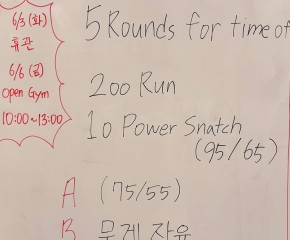 6/3 (화)
휴관
6/6 (금)
Open Gym
10:00~13:00
5 Rounds for time of
200 Run
10 Power Snatch
(95/65)
A (75/55)
B 무게 자유